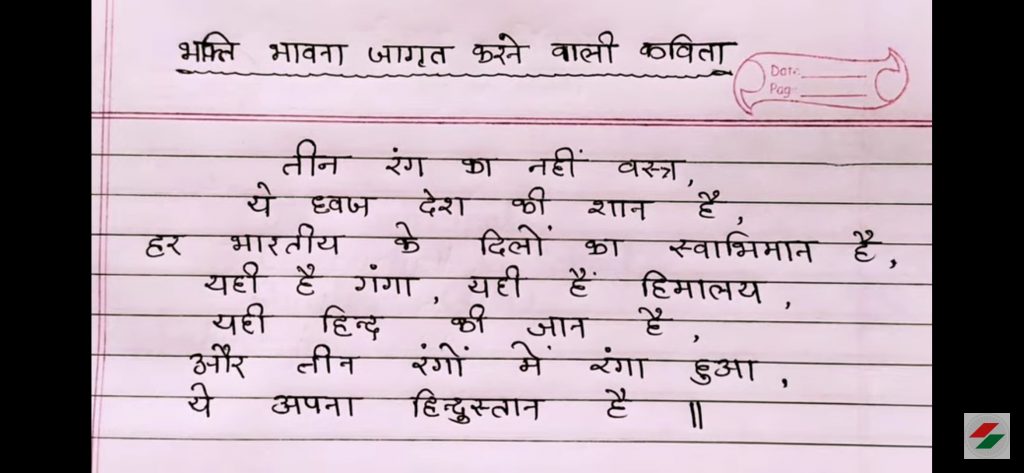 भक्ति भावना जागृत करने वाली कविता
Date
Page
तीन रंग का नहीं वस्त्र,
ये ध्वज देश की शान है,
हर भारतीय के दिलों का स्वाभिमान है,
यही है गंगा, यही हैं हिमालय,
यही हिन्द की जान है,
और तीन रंगों में रंगा हुआ,
ये अपना हिन्दुस्तान है ॥